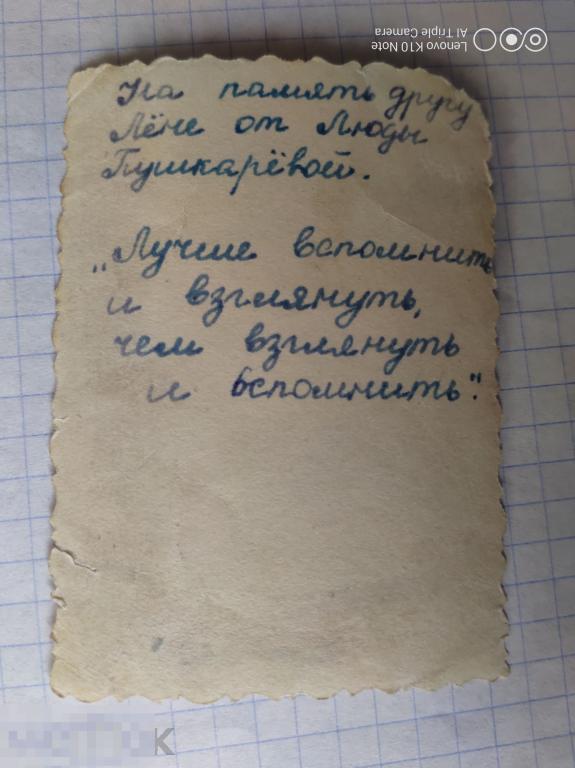 На память другу
Лёне от Люды
Пушкарёвой.
„Лучше вспомнить
и взглянуть,
чем взглянуть
и вспомнить".
Lenovo K10 Note
AI Triple Camera